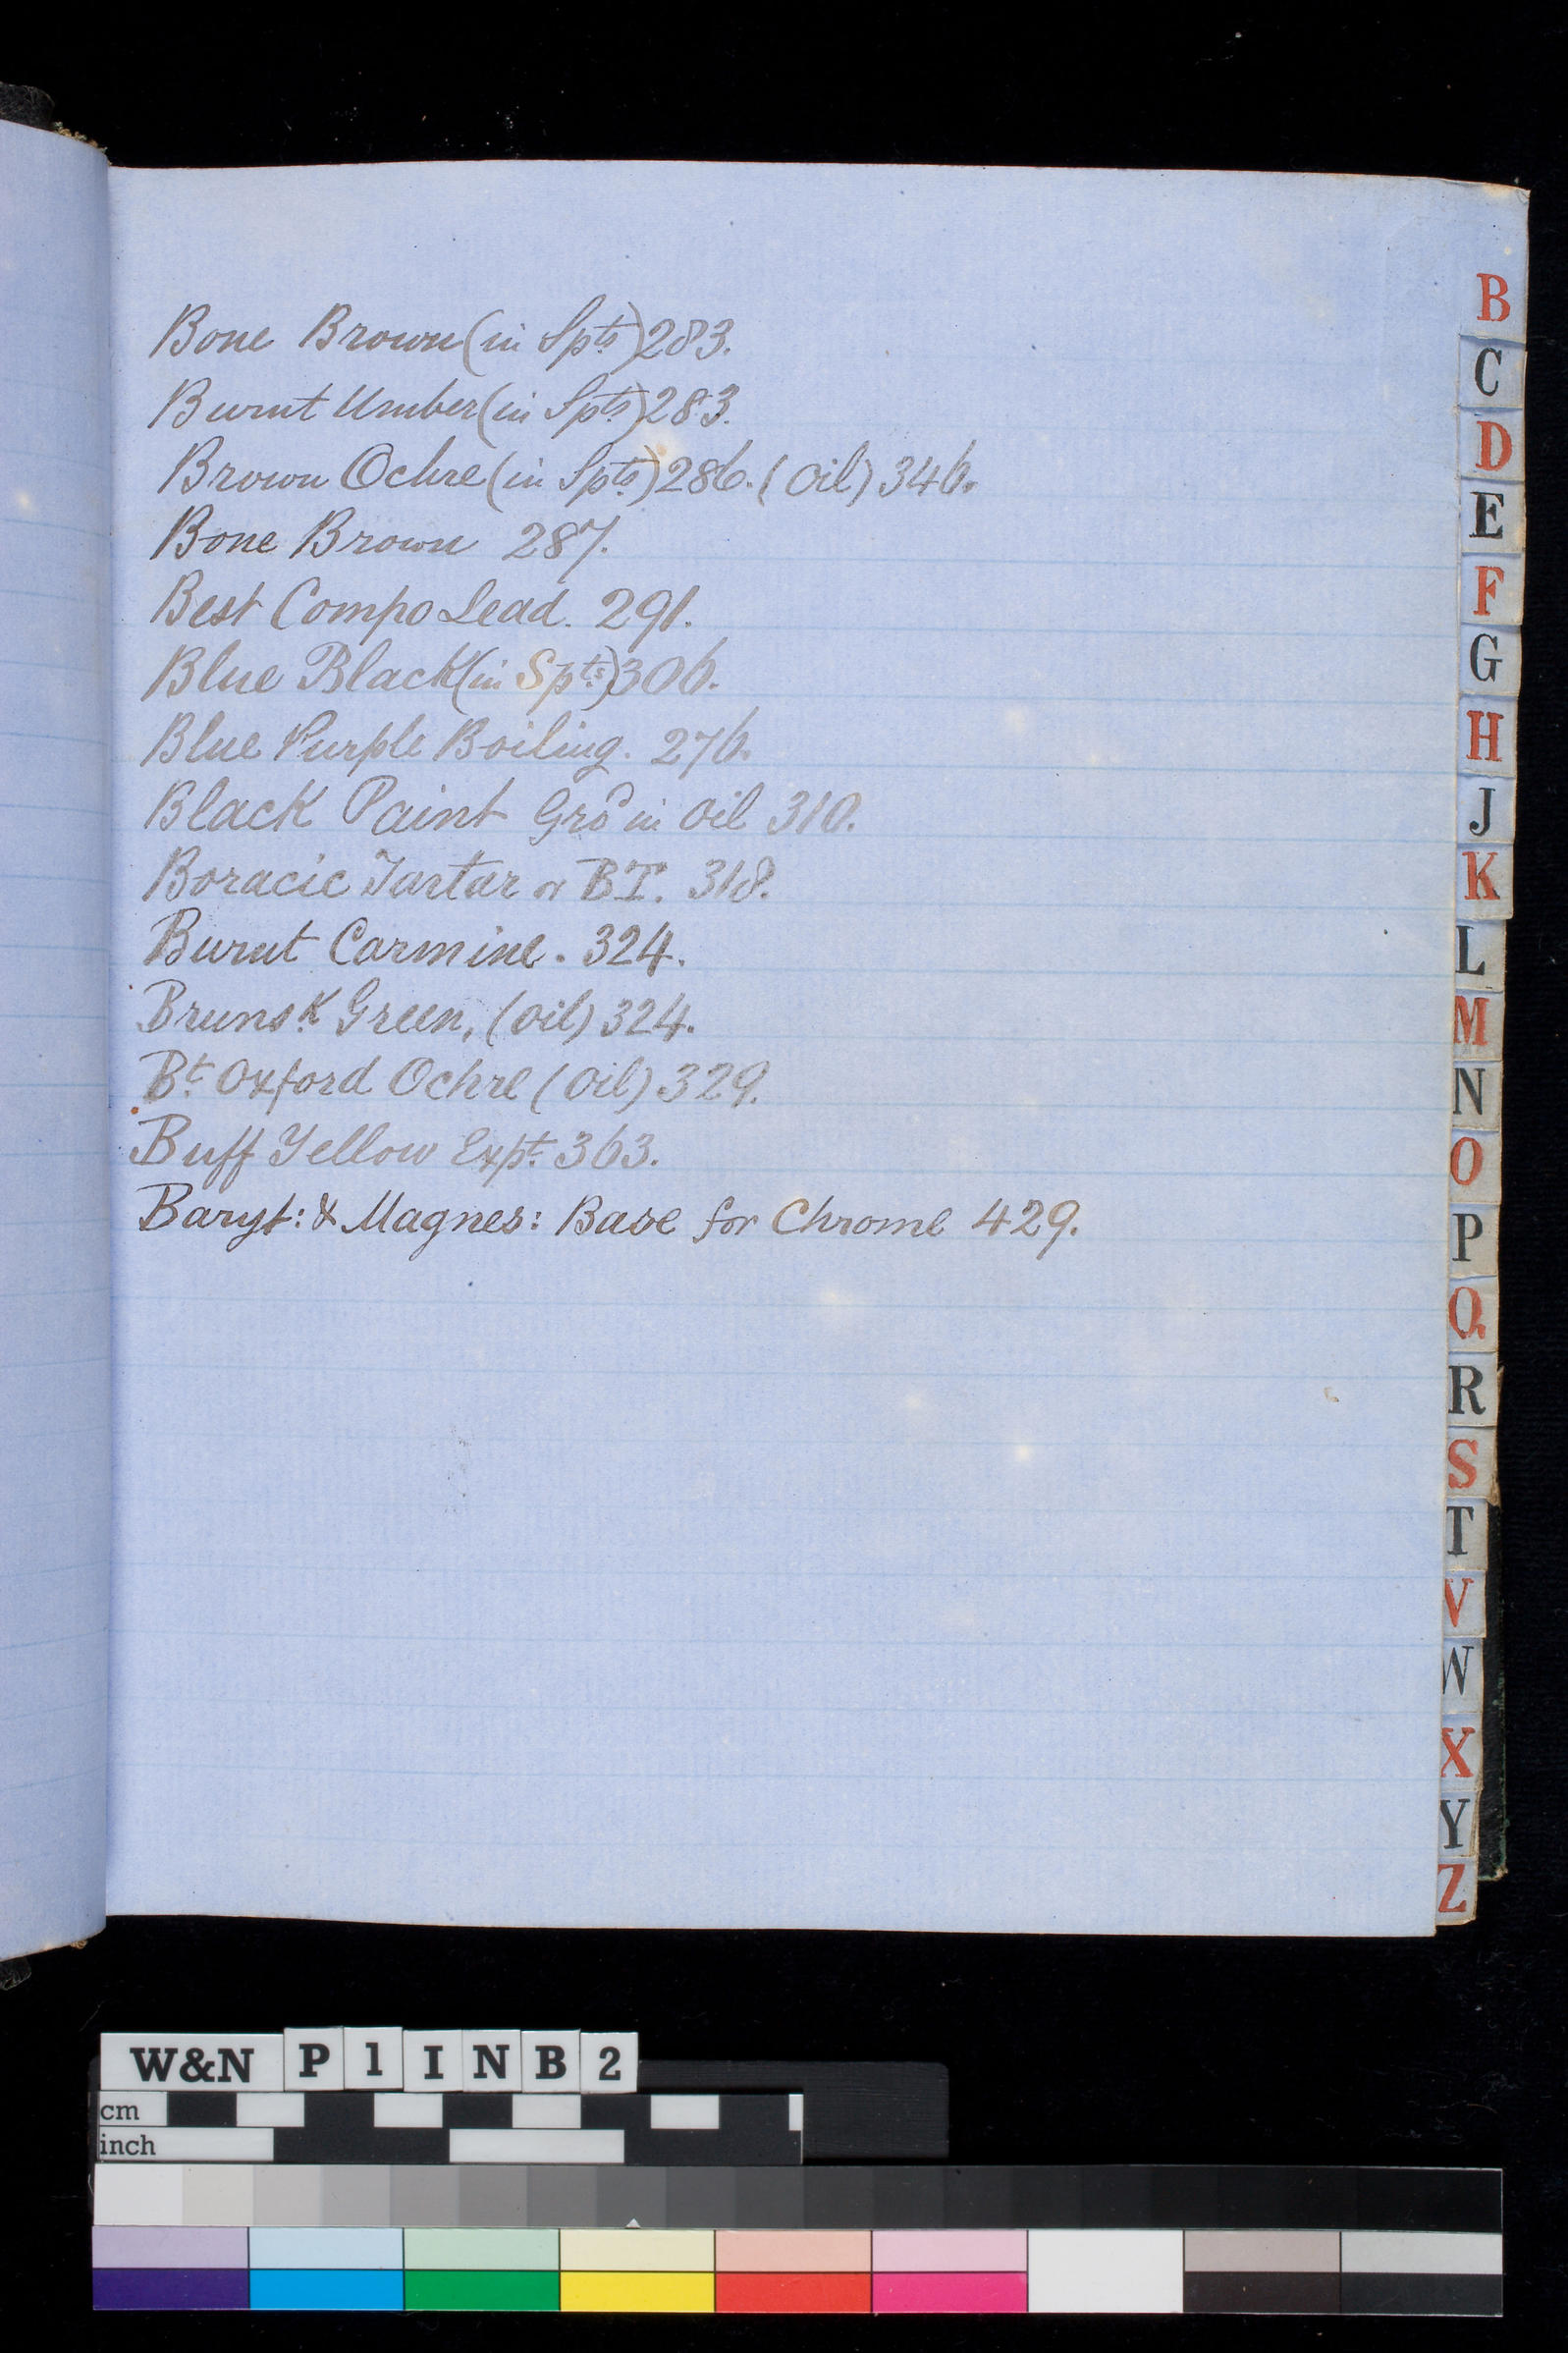 Bone Brown (in Spts) 283.
Burnt Umber (in Spts) 283.
Brown Ochre (in Spts) 286. (Oil) 346.
Bone Brown 287.
Best Compo Lead. 291.
Blue Black (in Spts) 306.
Blue Purple Boiling. 276.
Black Paint Grd in Oil 310.
Boracic Tartar or BT. 318.
Burnt Carmine. 324.
Brunsk Green, (Oil) 324.
Bt Oxford Ochre (Oil) 329.
Buff Yellow Expt 363.
Baryt: & Magnes: Base for Chrome 429.
B
C
D
E
F
G
H
J
K
L
M
N
O
P
Q
R
S
T
V
W
X
Y
Z
W&N P 1 I N B 2
cm
inch